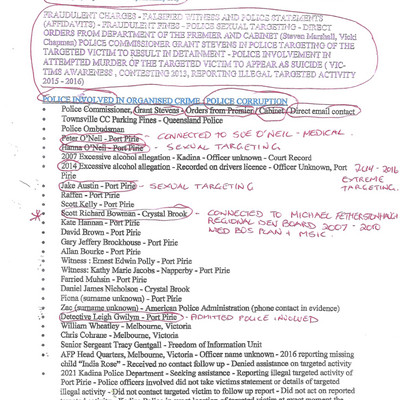 FRAUDULENT CHARGES - FALSIFIED WITNESS AND POLICE STATEMENTS
(AFFIDAVITS) - FRAUDULENT FINES - POLICE SEXUAL TARGETING - DIRECT
ORDERS FROM DEPARTMENT OF THE PREMIER AND CABINET (Steven Marshall, Vicki
Chapman) POLICE COMMISSIONER GRANT STEVENS IN POLICE TARGETING OF THE
TARGETED VICTIM TO RESULT IN DETAINMENT - POLICE INVOLVEMENT IN
ATTEMPTED MURDER OF THE TARGETED VICTIM TO APPEAR AS SUICIDE ( VIC-
TIMS AWARENESS , CONTESTING 2013, REPORTING ILLEGAL TARGETED ACTIVITY
2015 - 2016)
POLICE INVOLVED IN ORGANISED CRIME / POLICE CORRUPTION
Police Commissioner, Grant Stevens - Orders from Premier / Cabinet, Direct email contact
Townsville CC Parking Fines - Queensland Police
Police Ombudsman
Peter O'Neil - Port Pirie - CONNECTED TO SUE O'NEIL - MEDICAL.
Hanna O'Neil - Port Pirie - SEXUAL TARGETING
2007 Excessive alcohol allegation - Kadina - Officer unknown - Court Record
2014 Excessive alcohol allegation - Recorded on drivers licence - Officer Unknown, Port 2014 - 2016
Pirie EXTREME
Jake Austin - Port Pirie - SEXUAL TARGETING TARGETING.
Raffen - Port Pirie
Scott Kelly - Port Pirie
Scott Richard Bowman - Crystal Brook - CONNECTED TO MICHAEL
Kate Hannan - Port Pirie REGIONAL DEV BOARD 2007 - 2010
David Brown - Port Pirie NEED BUS PLAN + MSIC.
Gary Jeffery Brockhouse - Port Pirie
Allan Bourke - Port Pirie
Witness : Ernest Edwin Polly - Port Pirie
Witness: Kathy Marie Jacobs - Napperby - Port Pirie
Farried Muhsin - Port Pirie
Daniel James Nicholson - Crystal Brook
Fiona (surname unknown) - Port Pirie
Zec (surname unknown) - American Police Administration (phone contact in evidence)
Detective Leigh Gwilym - Port Pirie - ADMITTED POLICE INVOLVED
William Wheatley - Melbourne, Victoria
Chris Cohrane - Melbourne, Victoria
Senior Sergeant Tracy Gentgall - Freedom of Information Unit
AFP Head Quarters, Melbourne, Victoria - Officer name unknown - 2016 reporting missing
child "India Rose" - Received no contact follow up - Denied assistance on targeted activity
2021 Kadina Police Department - Seeking assistance - Reporting illegal targeted activity of
Port Pirie - Police officers involved did not take victims statement or details of targeted
illegal activity - Did not contact targeted victim to follow up report - Did not act on reported